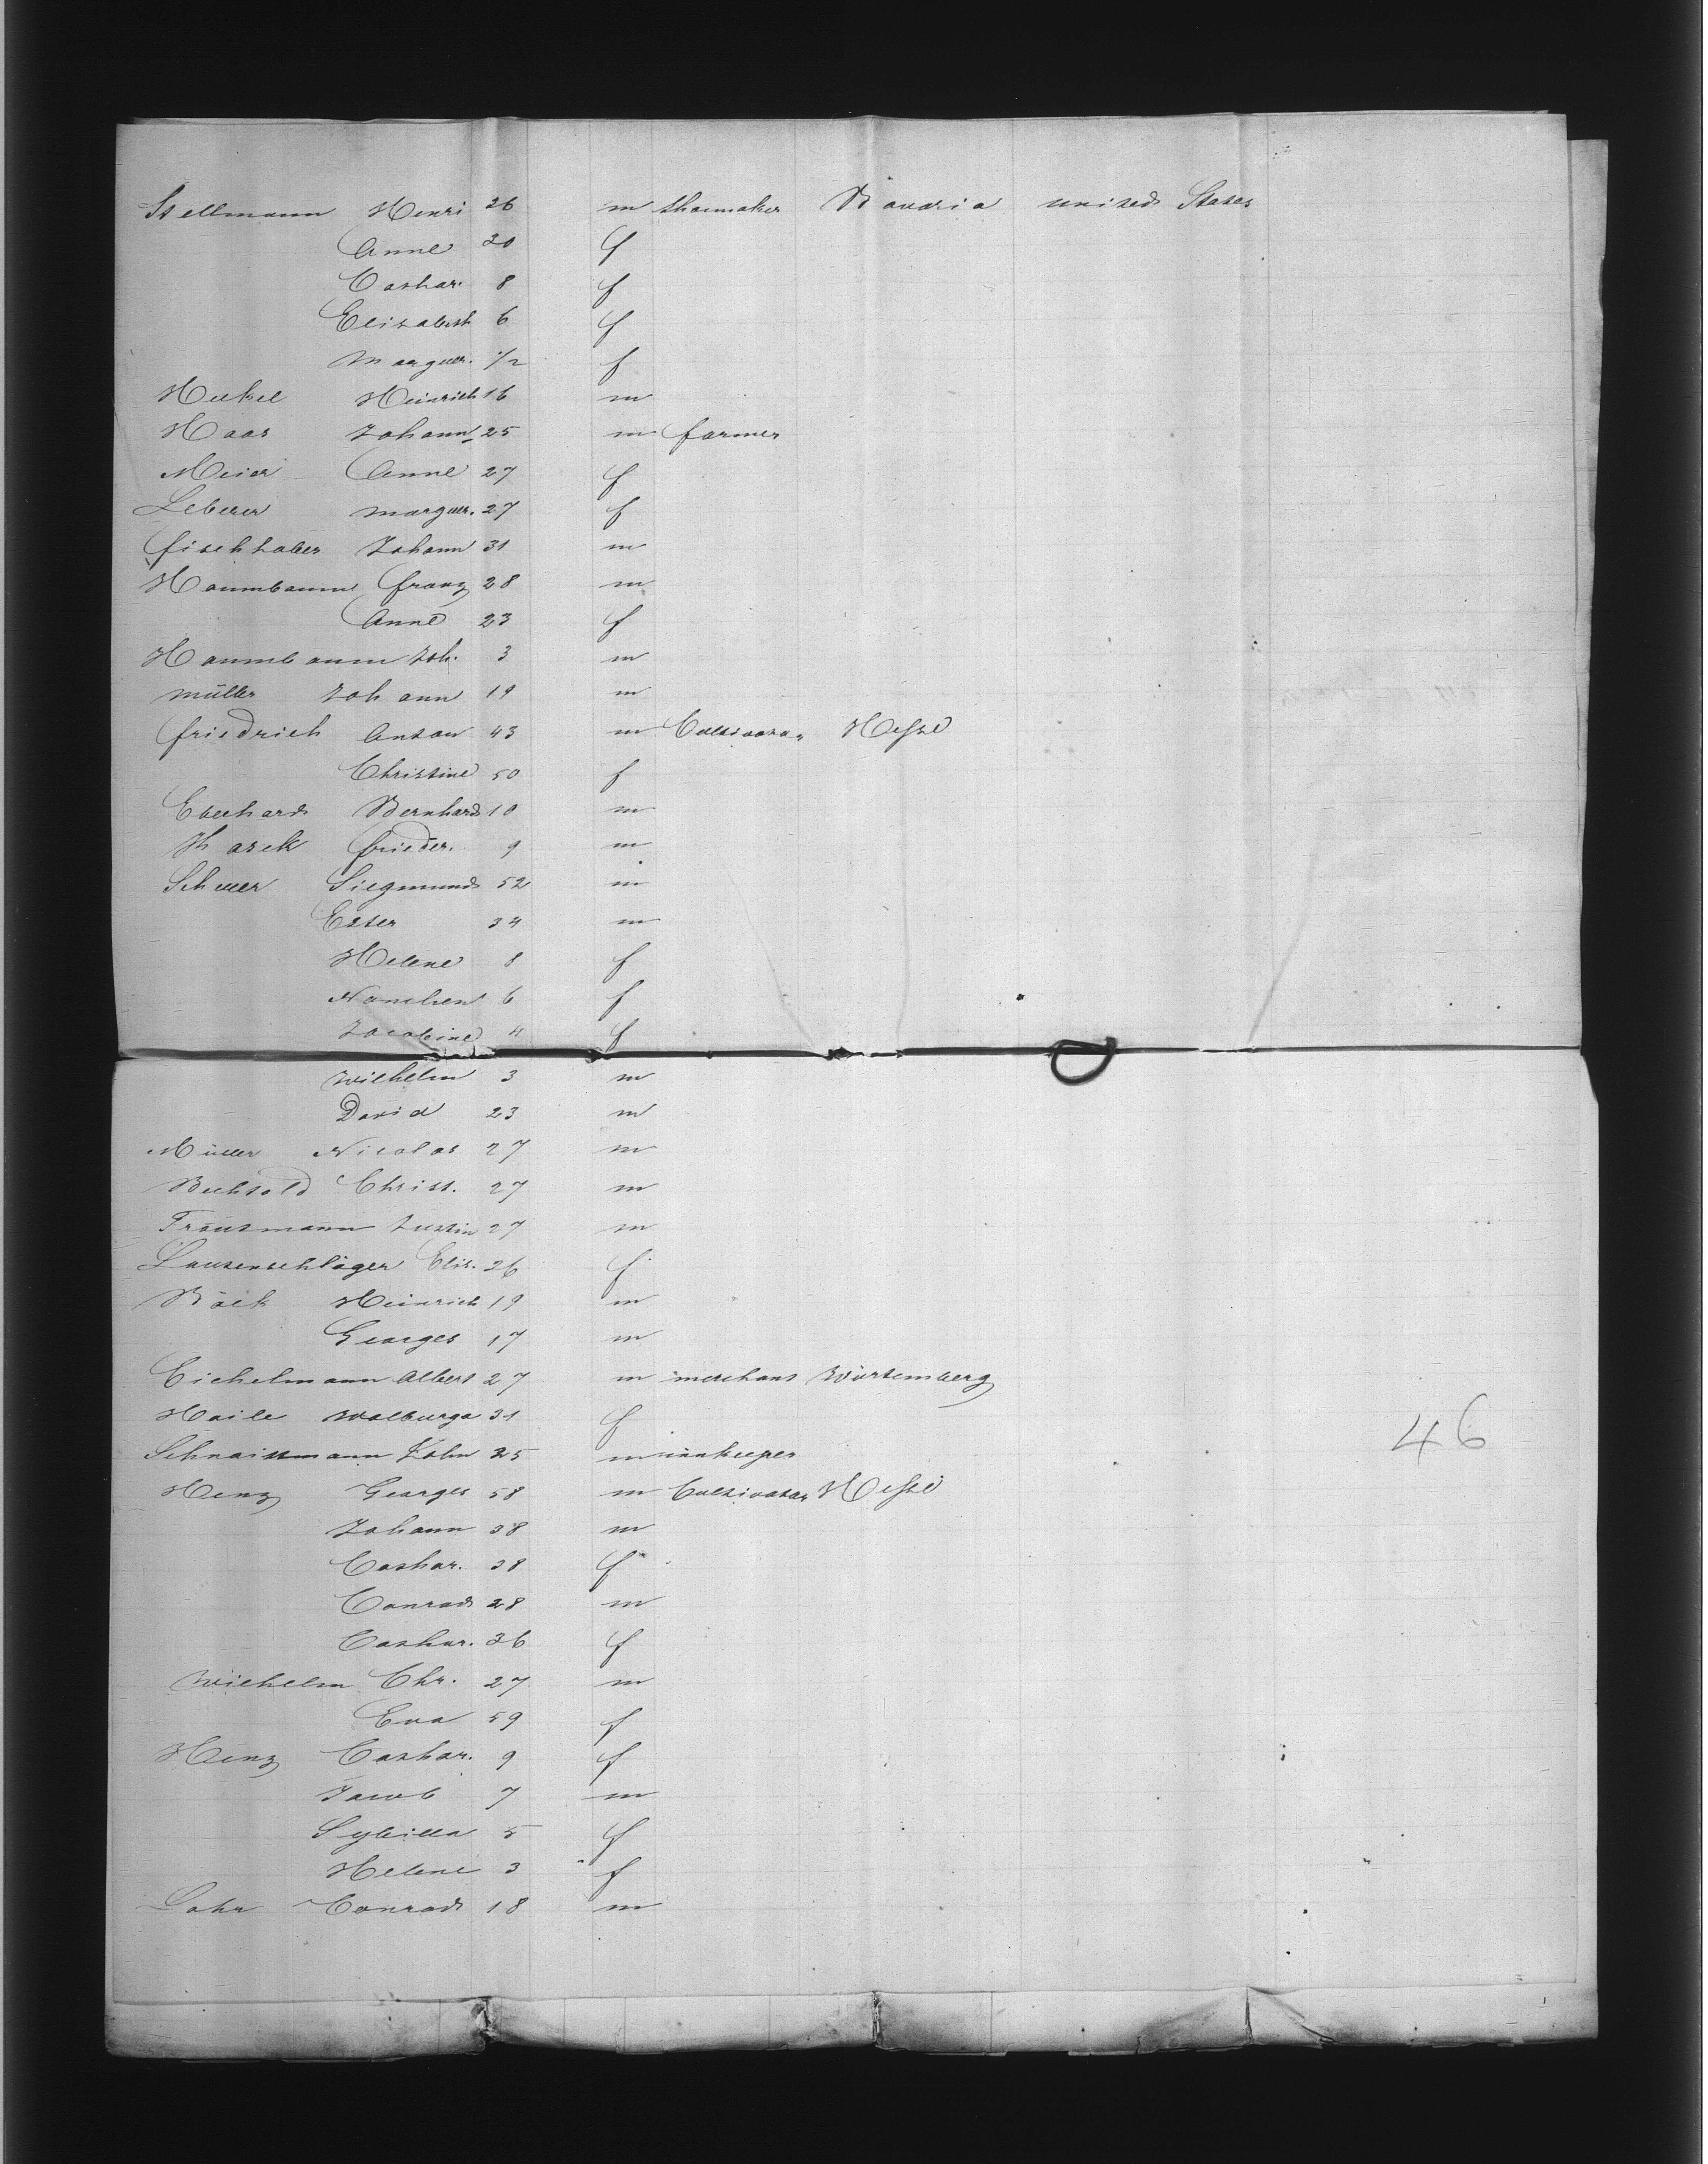 Stellmann Henri 26 m shoemaker Bavaria united States
Anne 30 f
Cathar. 8 f
Elisabeth 6 f
Marguer. 1/2 f
Heinrich 16 m
Haas Johann 25 m farmer
Meier Anne 27 f
Leberer marguer. 27 f
fischhaber Johann 31 m
Haumbaum franz 28 m
Anne 23 f
Haumbaum Joh. 3 m
müller Johann 19 m
friedrich Anton 43 m Cultivator Hesse
Christine 50 f
Eberhard Bernhard 10 m
frieder. 9 m
Scheuer Siegmund 52 m
Ester 34 m
Helene 8 f
Nanchen 6 f
Jacobine 4 f
Wilhelm 3 m
David 23 m
Müller Nicolas 27 m
Bechtold Christ. 27 m
Trautmann Justin 27 m
Lautenschläger Elis. 26 f
Böck Heinrich 19 m
Georges 17 m
Eichelmann Albert 27 m merchant Würtemberg
Haile Walburga 31 f
Schnaitmann John 25 m innkeeper
Henz Georges 58 m Cultivator Hesse
Johann 38 m
Cathar. 38 f
Conrad 28 m
Cathar. 36 f
Wilhelm Chr. 27 m
Eva 59 f
Henz Cathar. 9 f
Jacob 7 m
Sybilla 5 f
Helene 3 f
Lohr Conrad 18 m
46